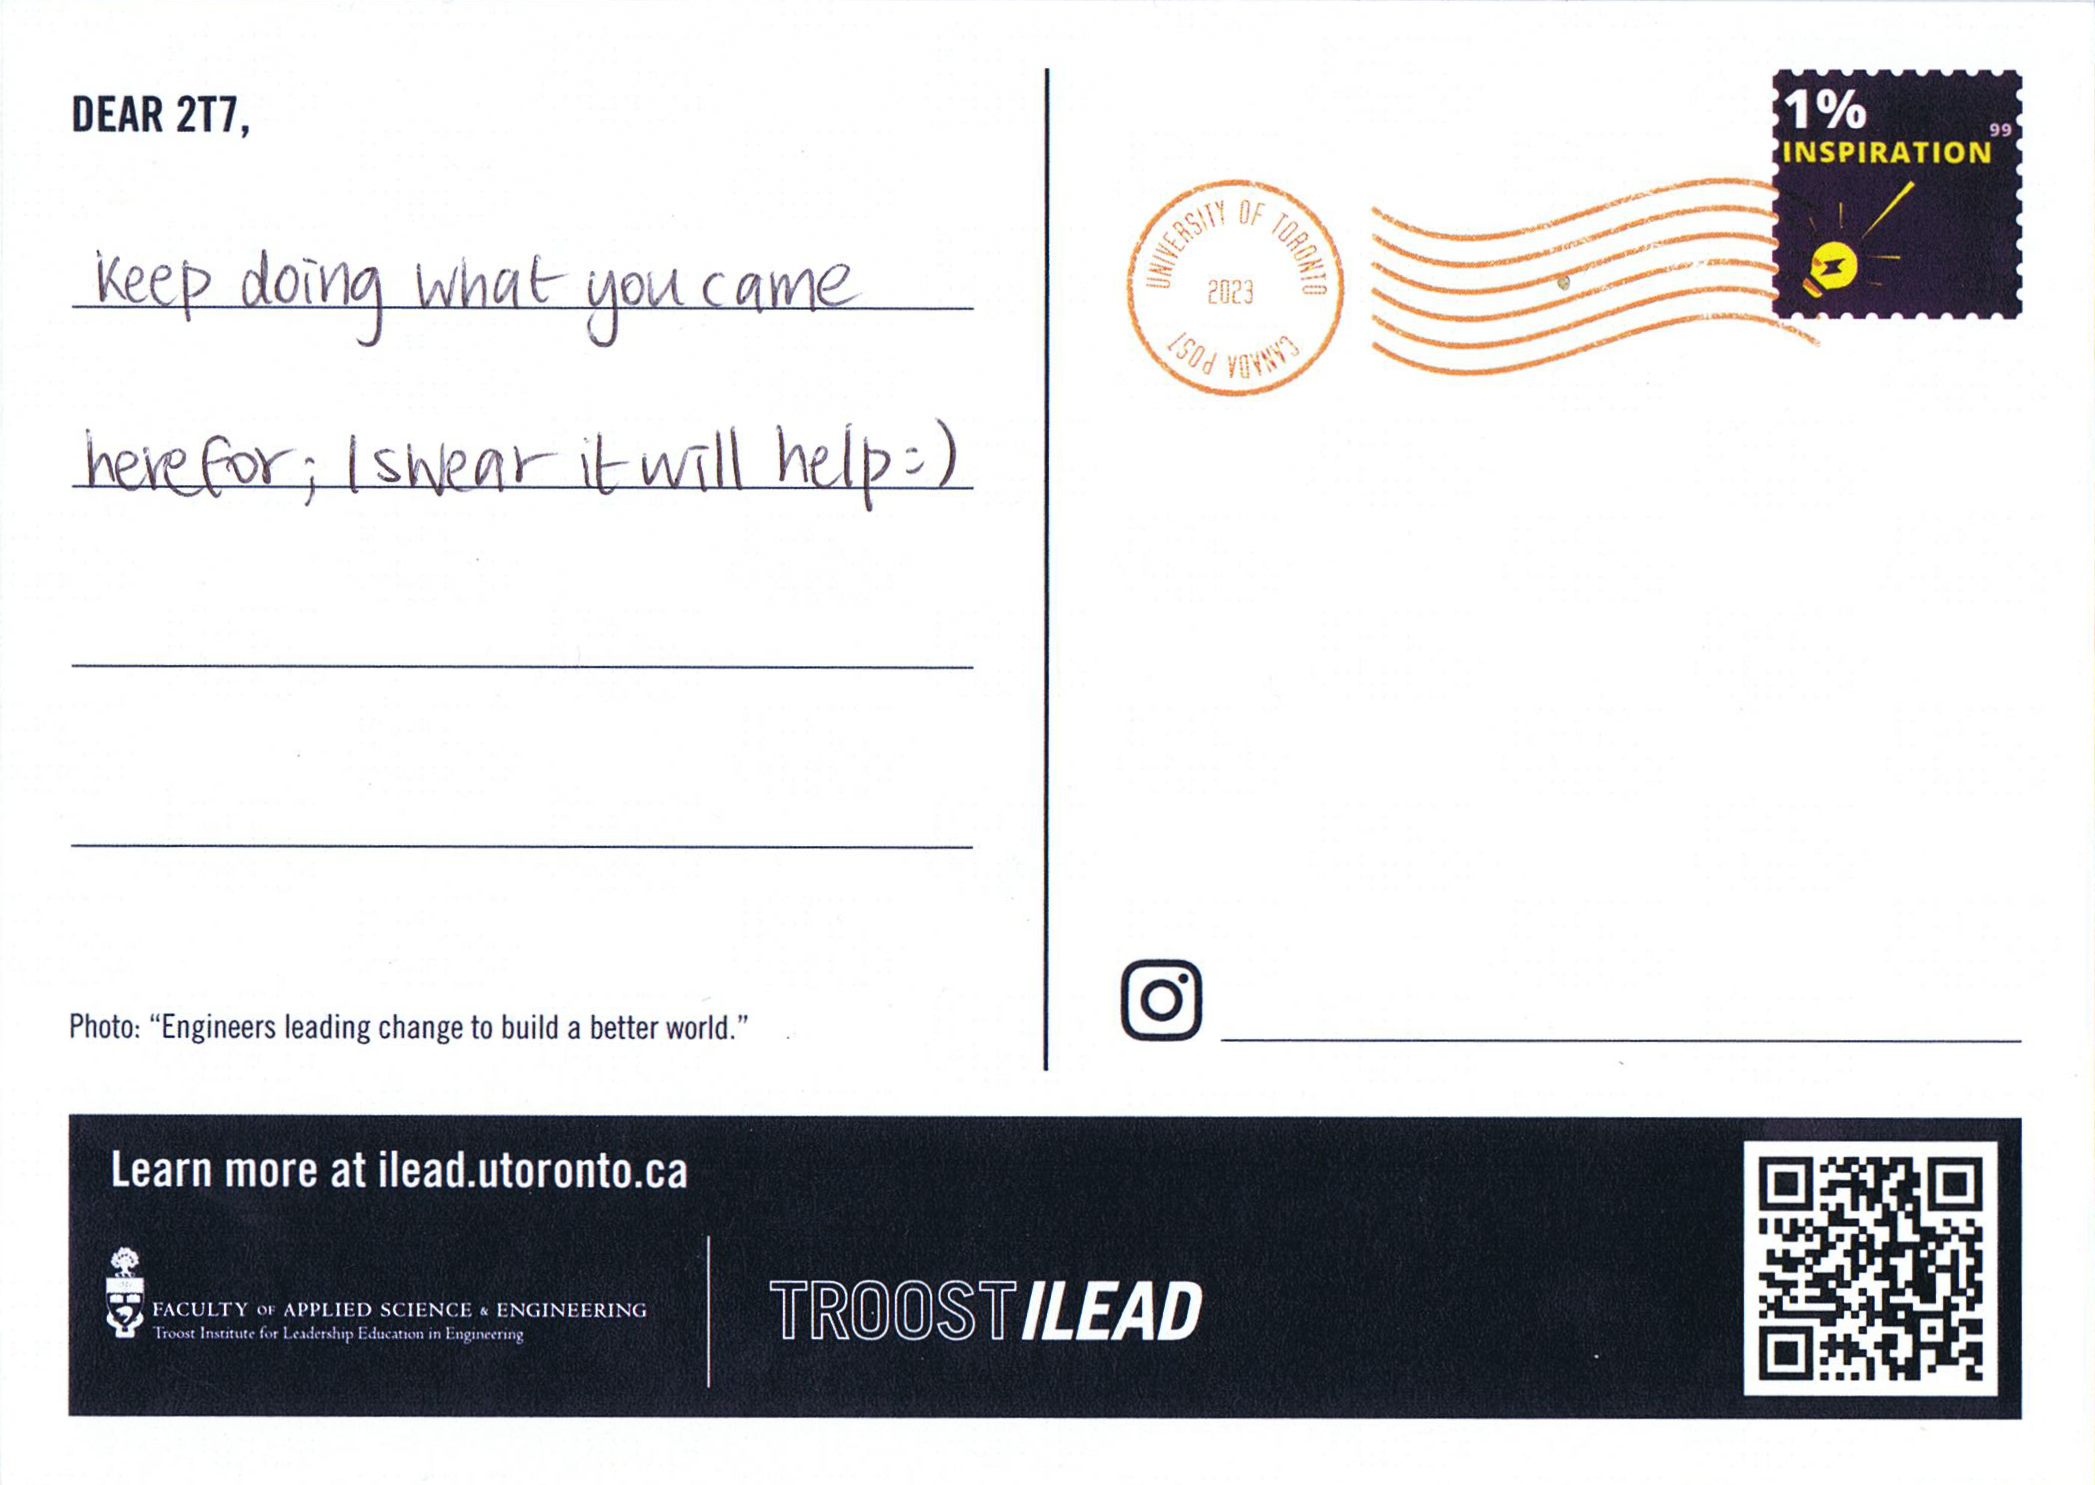 DEAR 2T7,
keep doing what you came
here for; I swear it will help =)
Photo: “Engineers leading change to build a better world.”
1%
99
INSPIRATION
UNIVERSITY OF TORONTO
2023
CANADA POST
Learn more at ilead.utoronto.ca
FACULTY OF APPLIED SCIENCE & ENGINEERING
Troost Institute for Leadership Education in Engineering
TROOST ILEAD